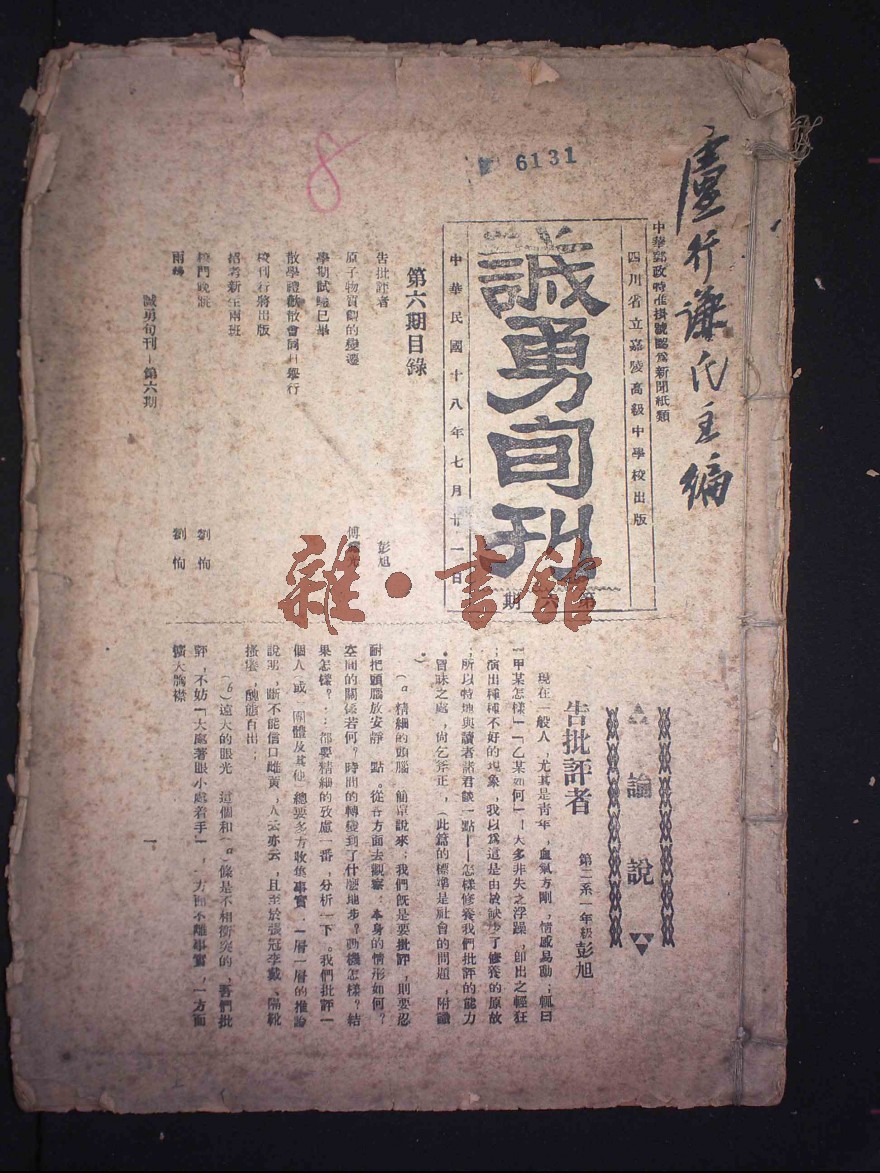 盧行謙氏主編
6131
8
中華郵政特准掛號認為新聞紙類
四川省立嘉陵高級中學校出版
誠勇旬刊
第六期
中華民國十八年七月廿一日
第六期目錄
告批評者 彭旭
原子物質觀的變遷
學期試驗已畢
散學禮歡散會同日舉行
校刊行將出版
招考新生兩班
校門晚眺 劉恂
雨蜂 劉恂
誠勇旬刊 第六期
論說
告批評者 第二系一年級彭旭
現在一般人，尤其是青年，血氣方剛，情感易動；輒曰
「甲某怎樣」「乙某如何」！大多非失之浮躁，卽出之輕狂
；演出種種不好的現象，我以為這是由於缺乏了修養的原故
；所以特地與讀者諸君談一點——怎樣修養我們批評的能力
。冒昧之處，尚乞斧正，（此篇的標準是社會的問題，附識
）
（a）精細的頭腦 簡單說來；我們旣是要批評，則要忍
耐把頭腦放安靜一點。從各方面去觀察：本身的情形如何？
空間的關係若何？時間的轉變到了什麼地步？動機怎樣？結
果怎樣？：都要精細的攷慮一番，分析一下。我們批評一
個人（或）團體及其他，總要多方收集事實，一層一層的推論
說明，斷不能信口雌黃，人云亦云，且至於張冠李戴、隔靴
搔癢，醜態百出；
（b）遠大的眼光 這個和（a）條是不相衝突的，吾們批
評，不妨「大處著眼小處着手」，一方面不離事實，一方面
擴大胸襟
一
雜·書館